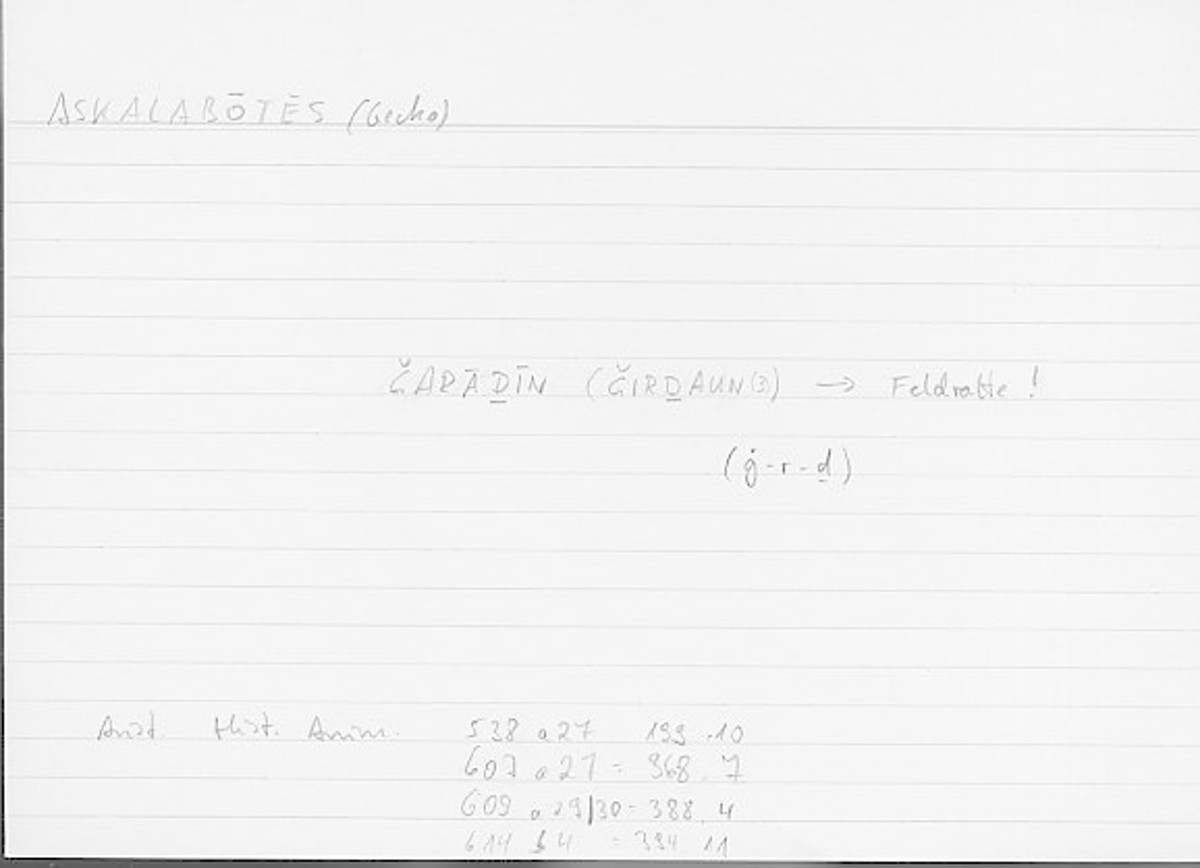 ASKALABŌTĒS (Gecko)
ČARĀḎĪN (ČIRḎAUN(3) → Feldratte !
(ǧ-r-ḏ)
Arist Hist. Anim. 538 a 27 199 .10
607 a 27 = 368 . 7
609 a 29|30 = 388. 4
614 b 4 = 394 11